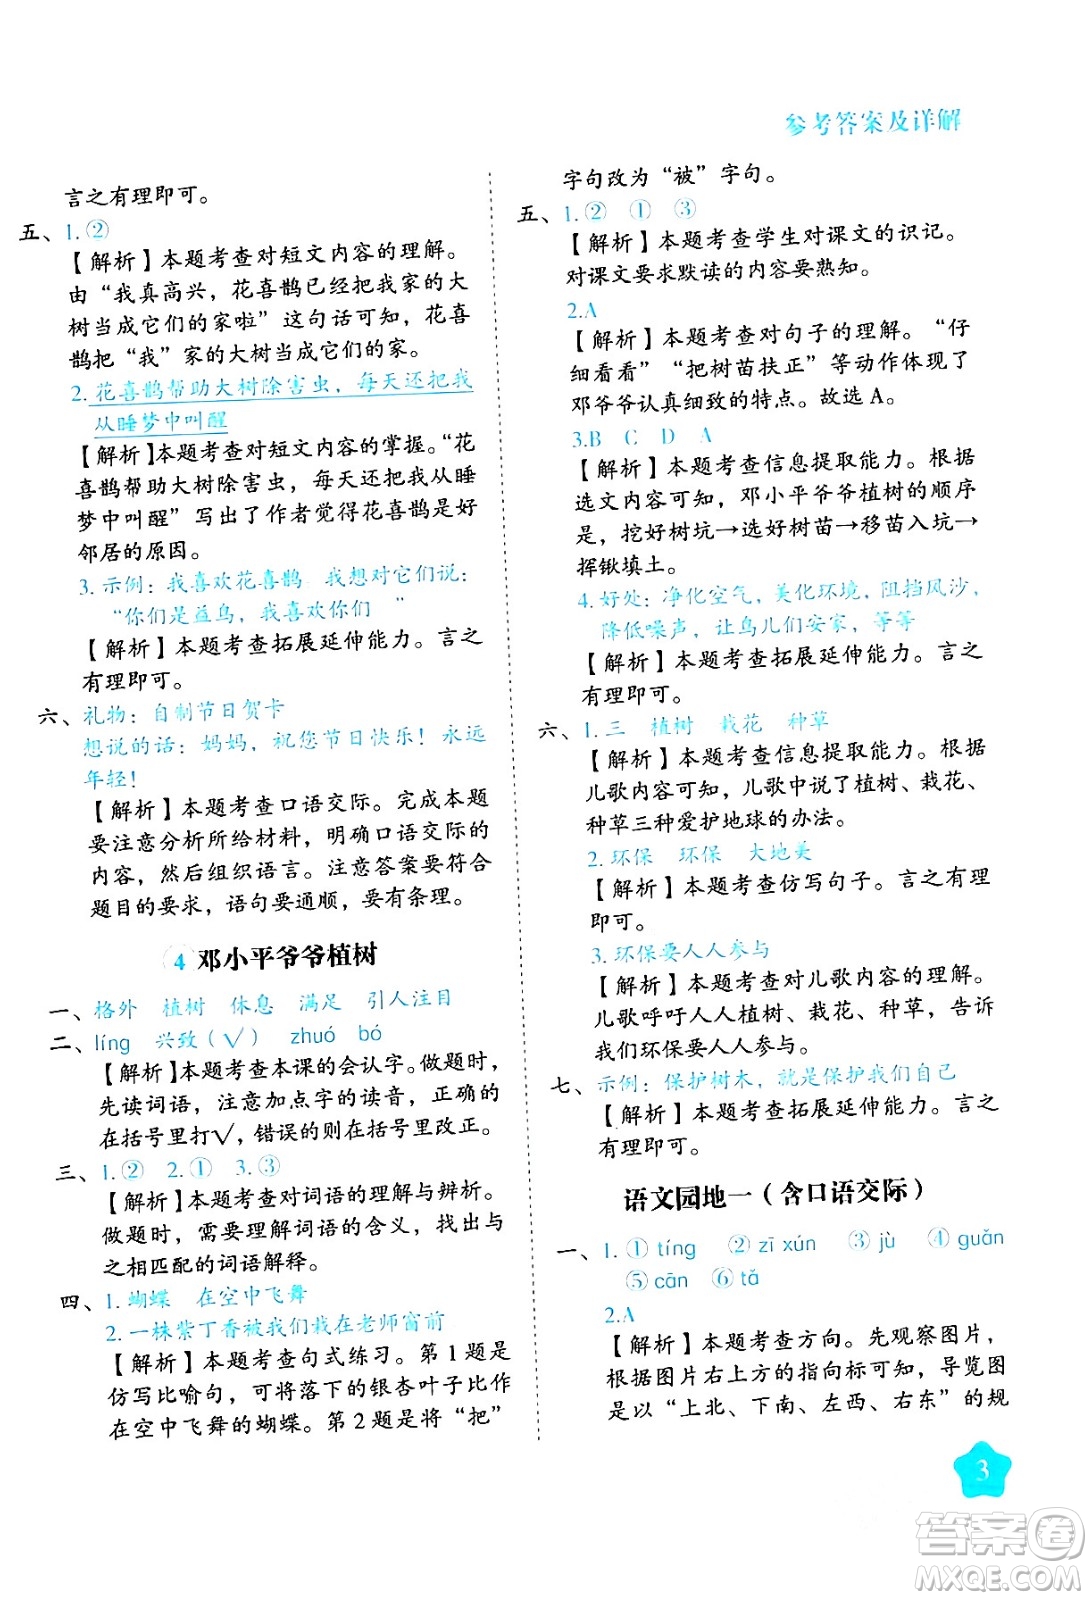 参考答案及详解
言之有理即可。
五、1.②
【解析】本题考查对短文内容的理解。
由“我真高兴，花喜鹊已经把我家的大
树当成它们的家啦”这句话可知，花喜
鹊把“我”家的大树当成它们的家。
2. 花喜鹊帮助大树除害虫，每天还把我
从睡梦中叫醒
【解析】本题考查对短文内容的掌握。“花
喜鹊帮助大树除害虫，每天还把我从睡
梦中叫醒”写出了作者觉得花喜鹊是好
邻居的原因。
3. 示例：我喜欢花喜鹊 我想对它们说：
“你们是益鸟，我喜欢你们 ”
【解析】本题考查拓展延伸能力。言之
有理即可。
六、礼物：自制节日贺卡
想说的话：妈妈，祝您节日快乐！永远
年轻！
【解析】本题考查口语交际。完成本题
要注意分析所给材料，明确口语交际的
内容，然后组织语言。注意答案要符合
题目的要求，语句要通顺，要有条理。
4 邓小平爷爷植树
一、格外 植树 休息 满足 引人注目
二、líng 兴致（√） zhuó bó
【解析】本题考查本课的会认字。做题时，
先读词语，注意加点字的读音，正确的
在括号里打√，错误的则在括号里改正。
三、1.② 2.① 3.③
【解析】本题考查对词语的理解与辨析。
做题时，需要理解词语的含义，找出与
之相匹配的词语解释。
四、1. 蝴蝶 在空中飞舞
2. 一株紫丁香被我们栽在老师窗前
【解析】本题考查句式练习。第 1 题是
仿写比喻句，可将落下的银杏叶子比作
在空中飞舞的蝴蝶。第 2 题是将“把”
字句改为“被”字句。
五、1.② ① ③
【解析】本题考查学生对课文的识记。
对课文要求默读的内容要熟知。
2.A
【解析】本题考查对句子的理解。“仔
细看看”“把树苗扶正”等动作体现了
邓爷爷认真细致的特点。故选 A。
3.B C D A
【解析】本题考查信息提取能力。根据
选文内容可知，邓小平爷爷植树的顺序
是，挖好树坑→选好树苗→移苗入坑→
挥锹填土。
4. 好处：净化空气，美化环境，阻挡风沙，
降低噪声，让鸟儿们安家，等等
【解析】本题考查拓展延伸能力。言之
有理即可。
六、1. 三 植树 栽花 种草
【解析】本题考查信息提取能力。根据
儿歌内容可知，儿歌中说了植树、栽花、
种草三种爱护地球的办法。
2. 环保 环保 大地美
【解析】本题考查仿写句子。言之有理
即可。
3. 环保要人人参与
【解析】本题考查对儿歌内容的理解。
儿歌呼吁人人植树、栽花、种草，告诉
我们环保要人人参与。
七、示例：保护树木，就是保护我们自己
【解析】本题考查拓展延伸能力。言之
有理即可。
语文园地一（含口语交际）
一、1. ① tíng ② zī xún ③ jù ④ guǎn
⑤ cān ⑥ tǎ
2.A
【解析】本题考查方向。先观察图片，
根据图片右上方的指向标可知，导览图
是以“上北、下南、左西、右东”的规
3
答案圈
MXQE.COM